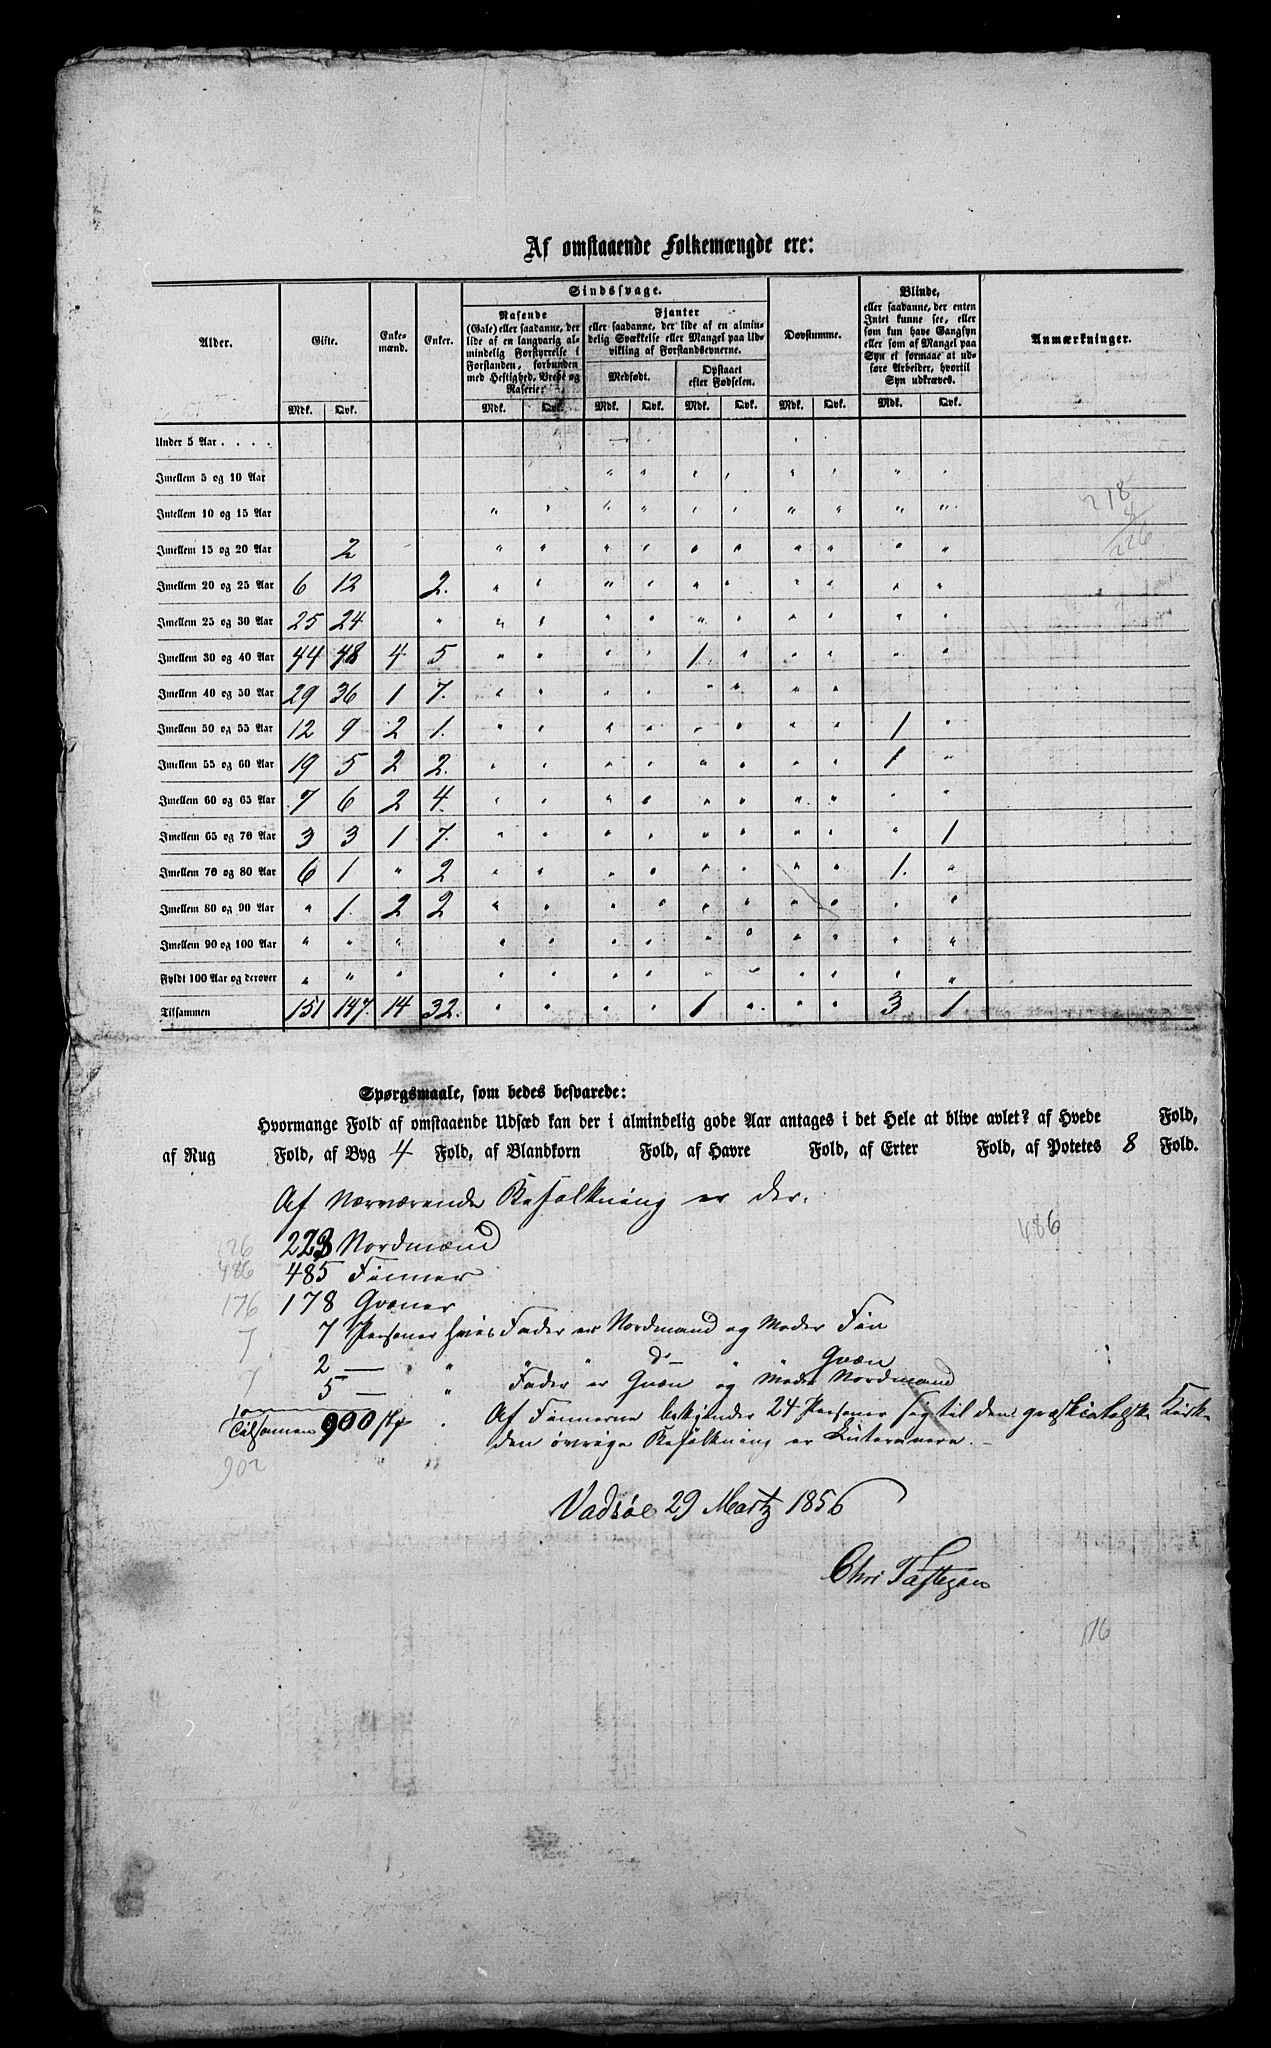 Af omstaaende Folkemængde ere:
Alder. Gifte. Enke-mænd. Enker. Sindssvage. Døvstumme. Blinde, Anmærkninger.
Rasende (Gale) eller saadanne, der lide af en langvarig almindelig Forstyrrelse i Forstanden, forbunden med Heftighed, Vrede og Raseri.
Fjanter eller saadanne, der lide af en almindelig Svækkelse eller Mangel paa Udvikling af Forstandsevnerne.
Medfødt. Opstaaet efter Fødselen.
eller saadanne, der enten Intet kunne see, eller som kun have Gangsyn eller som af Mangel paa Syn et formaae at udføre Arbeider, hvortil Syn udkræves.
Mdk. Qvk. Mdk. Qvk. Mdk. Qvk. Mdk. Qvk. Mdk. Qvk. Mdk. Qvk.
Under 5 Aar . . . .
Imellem 5 og 10 Aar
Imellem 10 og 15 Aar 218
Imellem 15 og 20 Aar 2 226
Imellem 20 og 25 Aar 6 12 2.
Imellem 25 og 30 Aar 25 24 "
Imellem 30 og 40 Aar 44 48 4 5 1.
Imellem 40 og 50 Aar 29 36 1 7.
Imellem 50 og 55 Aar 12 9 2 1. 1
Imellem 55 og 60 Aar 19 5 2 2. 1
Imellem 60 og 65 Aar 7 6 2 4.
Imellem 65 og 70 Aar 3 3 1 7. 1
Imellem 70 og 80 Aar 6 1 " 2 1.
Imellem 80 og 90 Aar " 1. 2 2
Imellem 90 og 100 Aar " " "
Fyldt 100 Aar og derover " " "
Tilsammen 151 147. 14 32. 1 3 1
Spørgsmaale, som bedes besvarede:
Hvormange Fold af omstaaende Udsæd kan der i almindelig gode Aar antages i det Hele at blive avlet? af Hvede Fold,
af Rug Fold, af Byg 4 Fold, af Blandkorn Fold, af Havre Fold, af Erter Fold, af Potetes 8 Fold.
Af Nærværende Befolkning er der.
226 223 Nordmænd 486
486 485 Finner
176 178 Qvæner
7 7 Personer hvis Fader er Nordmand og Moder Fin
2 — " " " d– " " Qvæn
7 5 — " Fader er Qvæn og Moder Nordmand
Tilsamen 900 Af Finnerne bekjender 24 Personer sig til den græskcatolske Kirk-
902 den øvrige Befolkning er Lutheranere.
Vadsøe 29 Martz 1856
Chri Taftezon
176